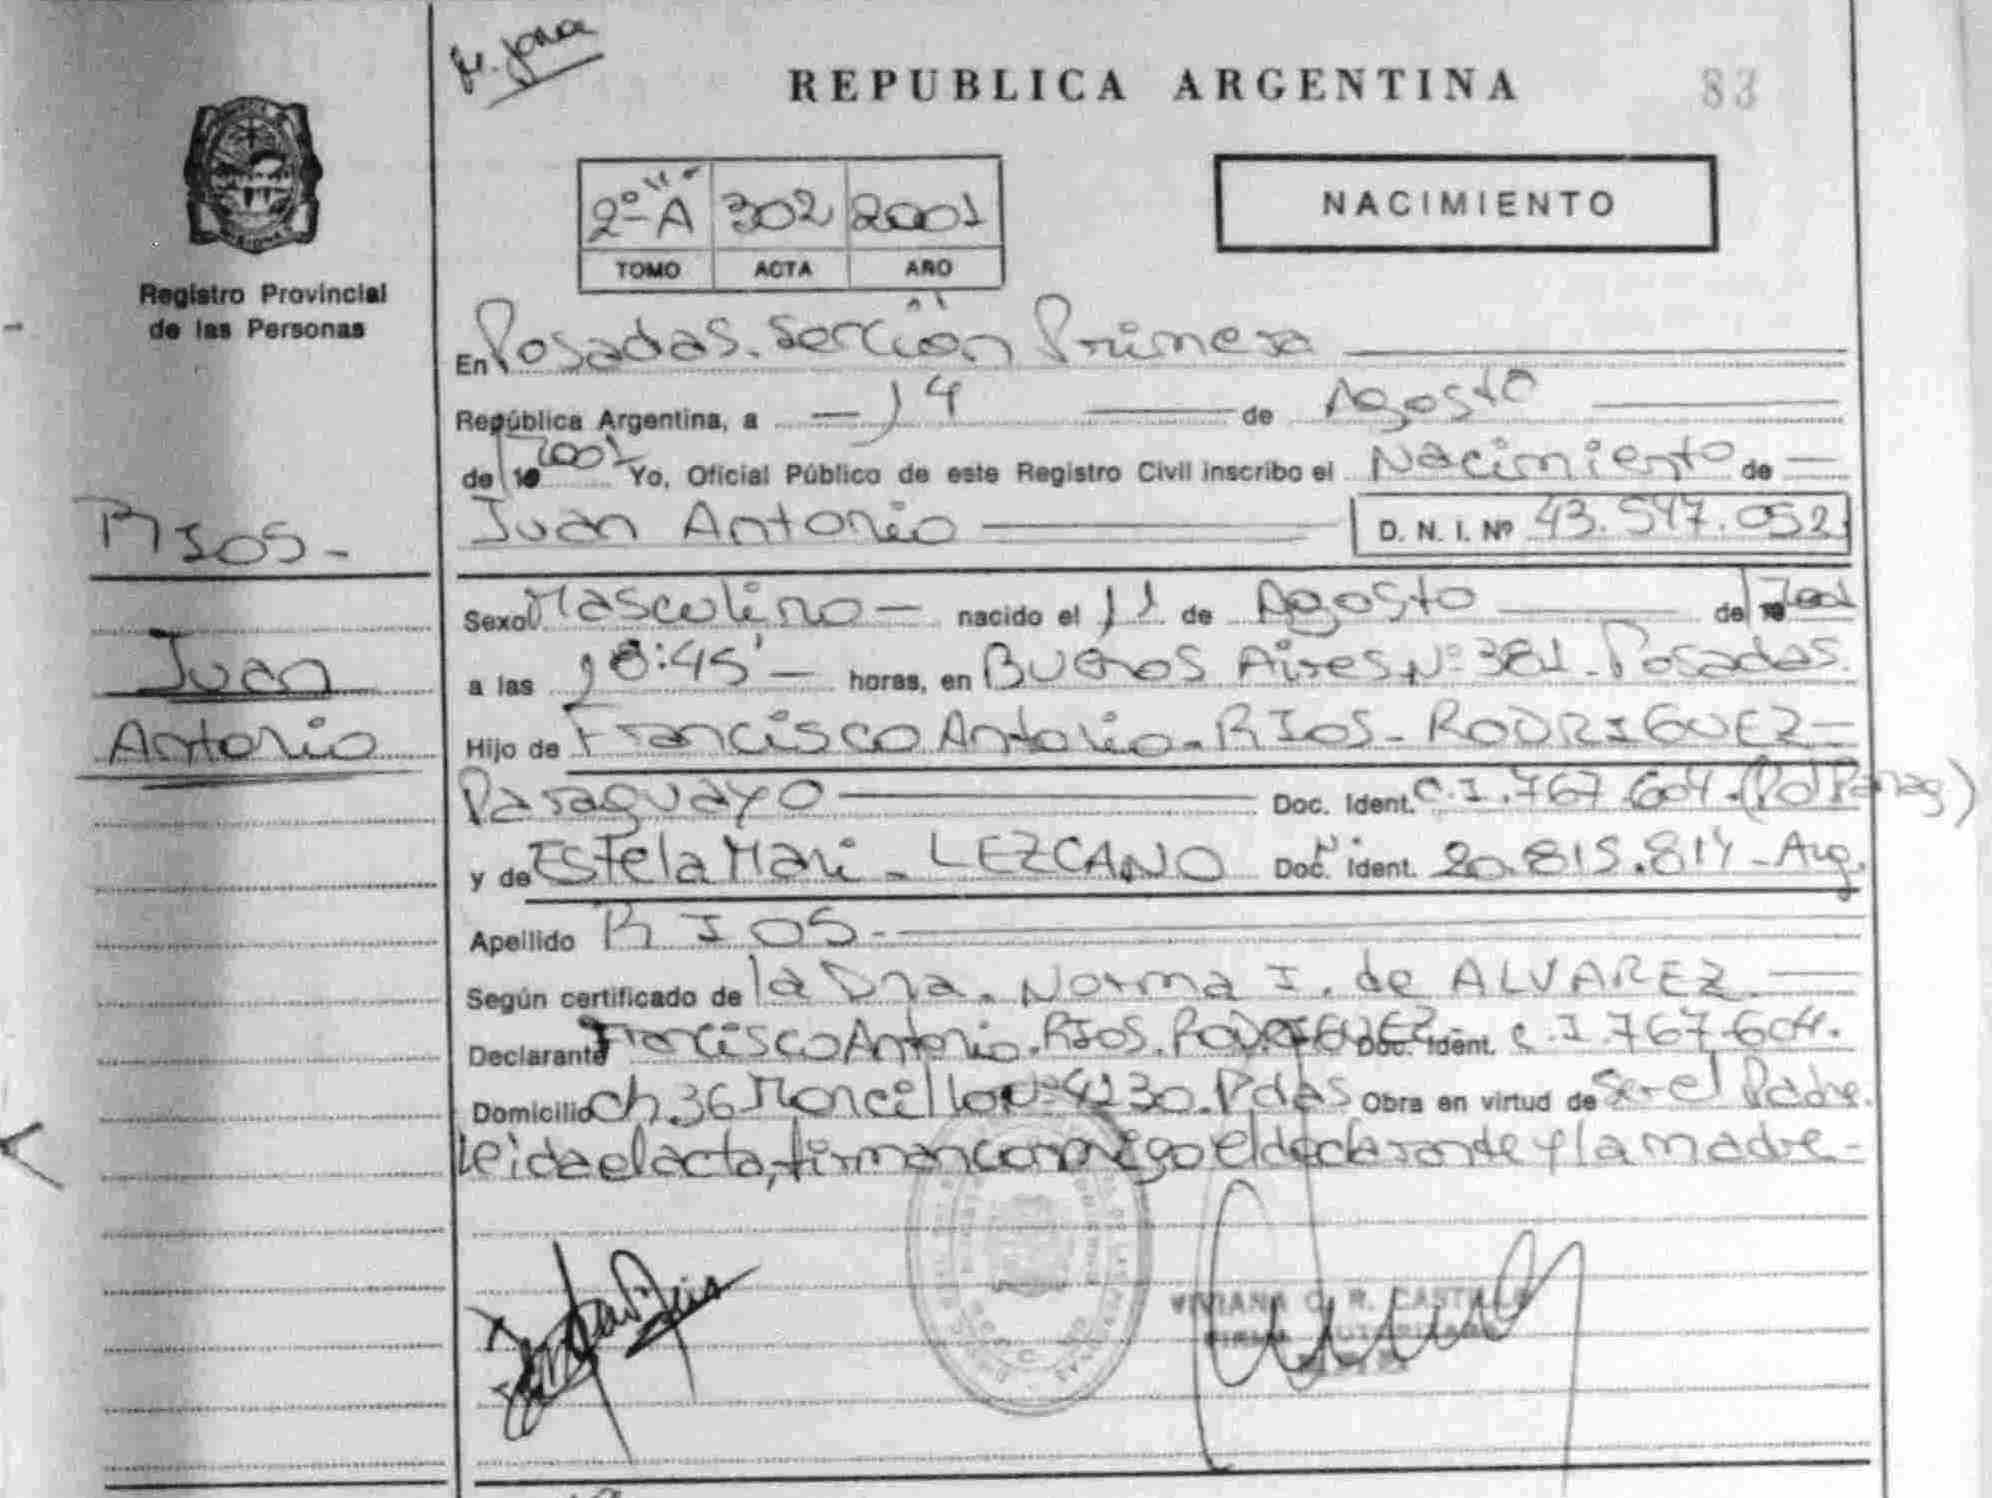 REPUBLICA ARGENTINA
83
2º A 302 2001
TOMO ACTA AÑO
NACIMIENTO
Registro Provincial
de las Personas
En Posadas. Sección Primera
República Argentina, a 14 de Agosto
de 2001 Yo, Oficial Público de este Registro Civil inscribo el Nacimiento de
RIOS-
Juan Antonio D. N. I. Nº 43.547.052
Juan
Antonio
Sexo Masculino nacido el 11 de Agosto de 2001
a las 18:45' horas, en Buenos Aires Nº 381. Posadas.
Hijo de Francisco Antonio - RIOS - RODRIGUEZ
Paraguayo Doc. Ident. C.I. 767.604. (Pol Parag)
y de Estela Mari - LEZCANO Doc. Ident. 20.815.814 - Arg.
Apellido RIOS.
Según certificado de la Dra. Norma I. de ALVAREZ
Declarante Francisco Antonio. RIOS. RODRIGUEZ Doc. Ident. C.I. 767.604.
Domicilio Ch. 36 Moncillo Nº 4230. Pdas Obra en virtud de Ser el Padre.
Leida el acta, firman conmigo el declarante y la madre-
VIVIANA C. R. CASTILLO